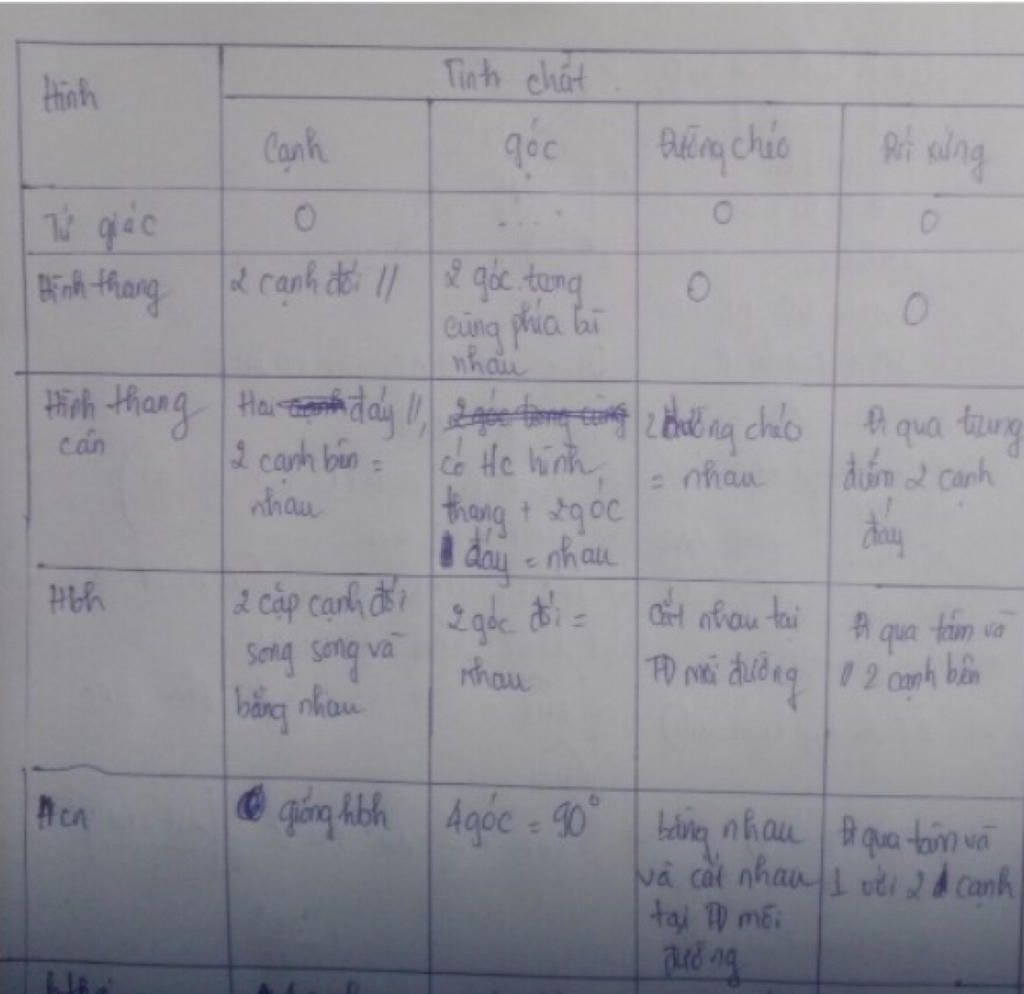 Hình
Tính chất
Cạnh
góc
Đường chéo
Đối xứng
Tứ giác
0
....
0
0
Hình thang
2 cạnh đối //
2 góc trong
cùng phía bù
nhau
0
0
Hình thang
cân
Hai cạnh đáy //,
2 cạnh bên =
nhau
2 góc trong cùng
có t/c hình
thang + 2 góc
đáy = nhau
2 đường chéo
= nhau
Đt qua trung
điểm 2 cạnh
đáy
Hbh
2 cặp cạnh đối
song song và
bằng nhau
2 góc đối =
nhau
cắt nhau tại
TĐ mỗi đường
Đt qua tâm và
// 2 cạnh bên
Hcn
giống hbh
4 góc = 90°
bằng nhau
và cắt nhau
tại TĐ mỗi
đường
Đt qua tâm và
⊥ với 2 cạnh